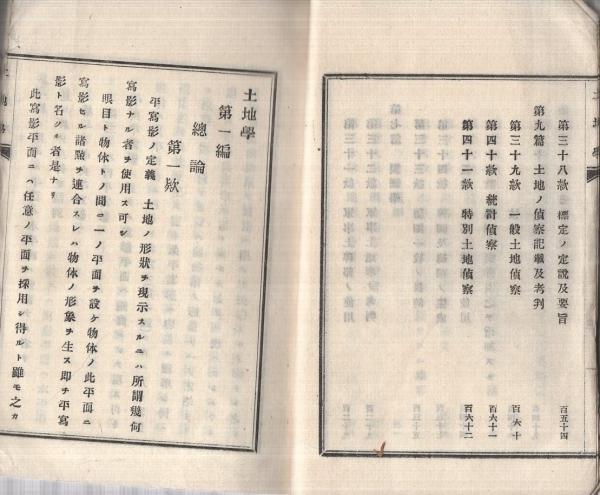 第三十八欵 標定ノ定説及要旨 百五十四
第九篇 土地ノ偵察記載及考判
第三十九欵 一般土地偵察 百六十
第四十欵 統計偵察 百六十一
第四十一欵 特別土地偵察 百六十二
土地學
第一編
總論
第一欵
平寫影ノ定義 土地ノ形狀ヲ現示スルニハ所謂幾何
寫影ナル者ヲ使用ス可シ
眼目ト物体トノ間ニ一ノ平面ヲ設ケ物体ノ此平面ニ
寫影セル諸點ヲ連合スレハ物体ノ形象ヲ生ス即チ平寫
影ト名クル者是ナリ
此寫影平面ニハ任意ノ平面ヲ採用シ得ルト雖モ之カ